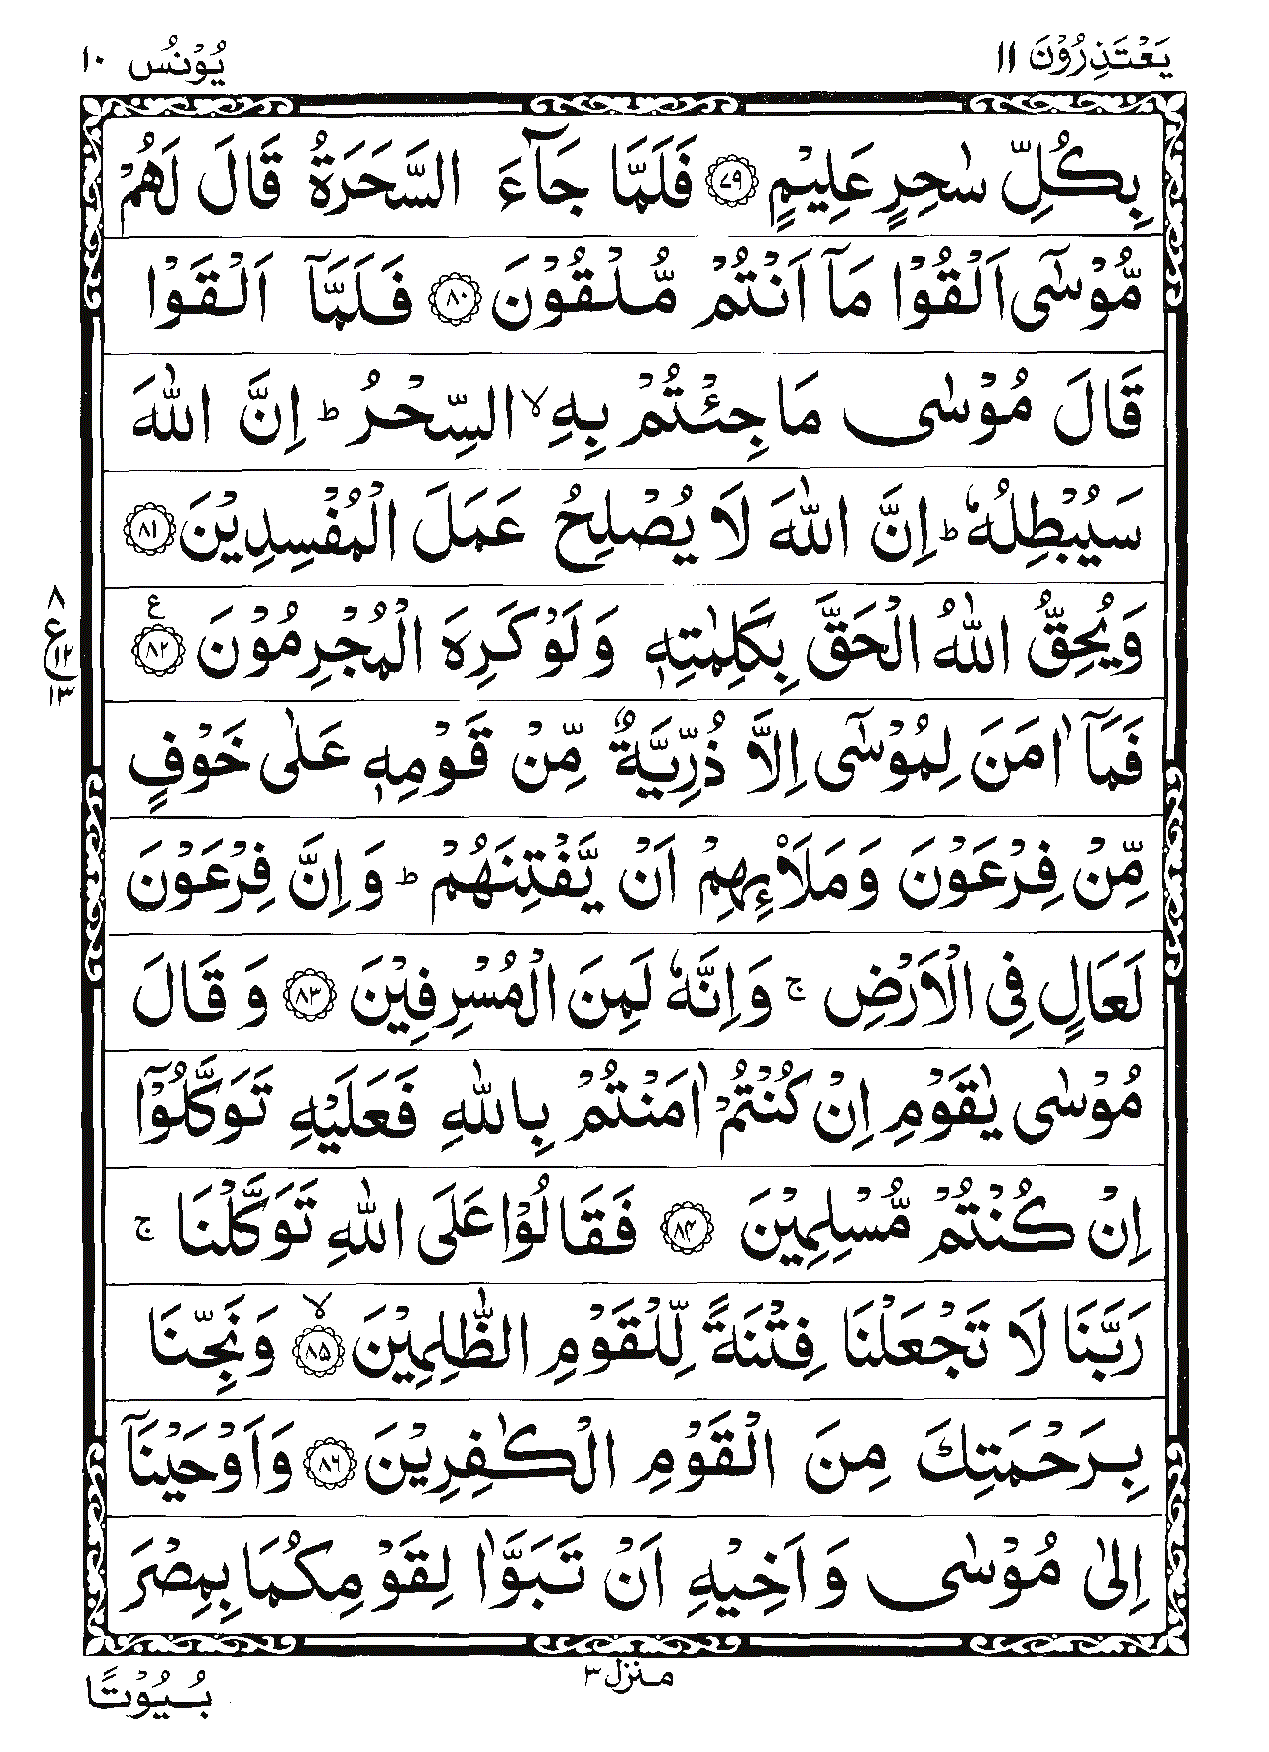 يَعْتَذِرُوْنَ ١١
يُوْنُس ١٠
بِكُلِّ سٰحِرٍ عَلِيْمٍ ﴿٧٩﴾ فَلَمَّا جَآءَ السَّحَرَةُ قَالَ لَهُمْ
مُّوْسٰٓى اَلْقُوْا مَآ اَنْتُمْ مُّلْقُوْنَ ﴿٨٠﴾ فَلَمَّآ اَلْقَوْا
قَالَ مُوْسٰى مَا جِئْتُمْ بِهِ ۙ السِّحْرُ ؕ اِنَّ اللّٰهَ
سَيُبْطِلُهٗ ؕ اِنَّ اللّٰهَ لَا يُصْلِحُ عَمَلَ الْمُفْسِدِيْنَ ﴿٨١﴾
وَيُحِقُّ اللّٰهُ الْحَقَّ بِكَلِمٰتِهٖ وَلَوْ كَرِهَ الْمُجْرِمُوْنَ ﴿٨٢﴾ ع
٨
ع
١٢
١٣
فَمَآ اٰمَنَ لِمُوْسٰٓى اِلَّا ذُرِّيَّةٌ مِّنْ قَوْمِهٖ عَلٰى خَوْفٍ
مِّنْ فِرْعَوْنَ وَمَلَا۟ئِهِمْ اَنْ يَّفْتِنَهُمْ ؕ وَاِنَّ فِرْعَوْنَ
لَعَالٍ فِى الْاَرْضِ ۚ وَاِنَّهٗ لَمِنَ الْمُسْرِفِيْنَ ﴿٨٣﴾ وَقَالَ
مُوْسٰى يٰقَوْمِ اِنْ كُنْتُمْ اٰمَنْتُمْ بِاللّٰهِ فَعَلَيْهِ تَوَكَّلُوْٓا
اِنْ كُنْتُمْ مُّسْلِمِيْنَ ﴿٨٤﴾ فَقَالُوْا عَلَى اللّٰهِ تَوَكَّلْنَا ۚ
رَبَّنَا لَا تَجْعَلْنَا فِتْنَةً لِّلْقَوْمِ الظّٰلِمِيْنَ ۙ﴿٨٥﴾ وَنَجِّنَا
بِرَحْمَتِكَ مِنَ الْقَوْمِ الْكٰفِرِيْنَ ﴿٨٦﴾ وَاَوْحَيْنَآ
اِلٰى مُوْسٰى وَاَخِيْهِ اَنْ تَبَوَّاٰ لِقَوْمِكُمَا بِمِصْرَ
منزل ٣
بُيُوْتًا